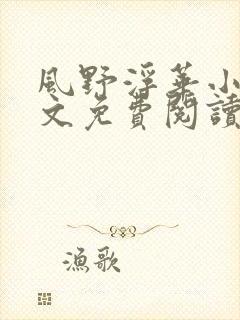 風野浮華小
文免費閱讀
漁歌